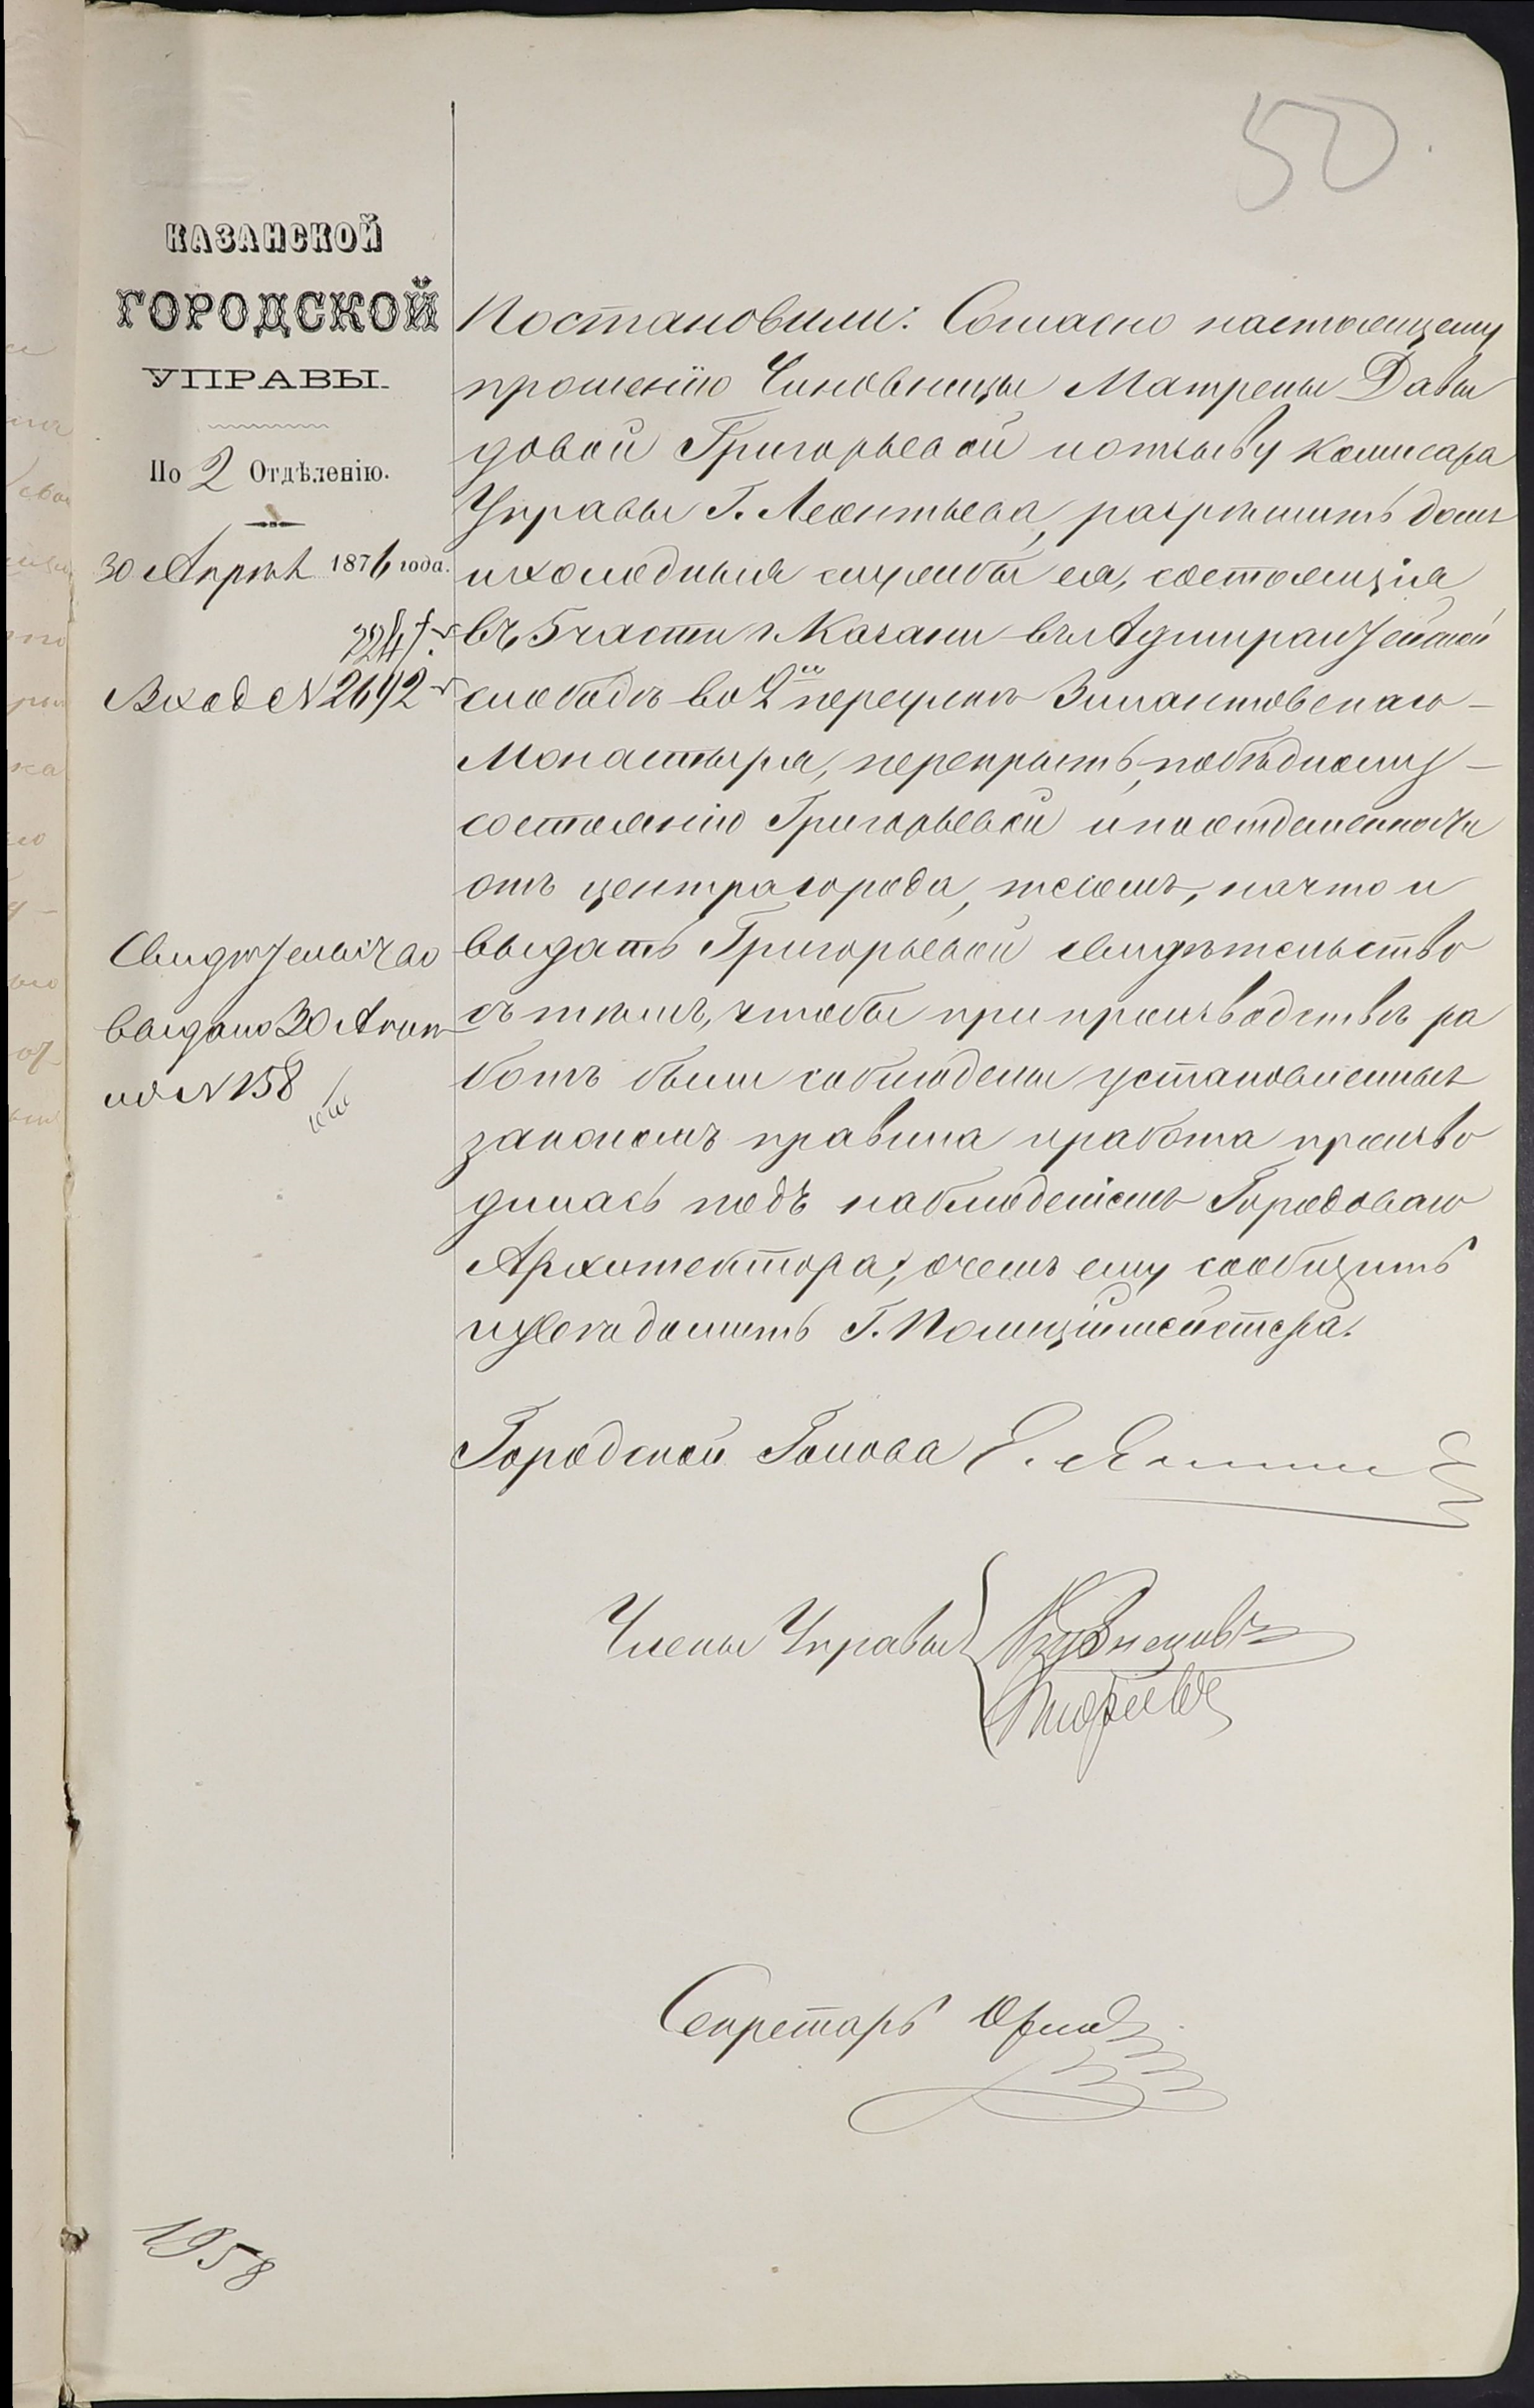 50.
КАЗАНСКОЙ
ГОРОДСКОЙ
УПРАВЫ.
По 2 Отдѣленію.
30 Апрѣл 1876 года.
Вход N 2692
Свидѣтельство
выдано 30 Апрѣ
ля N 158
Постановили: Согласно настоящему
прошенію Чиновницы Матрены Давы
довой Григорьевой и отзыву комисара
Управы Г. Леонтьева, разрѣшить домъ
и холодныя службы ея, состоящія
въ 5 части г. Казани въ Адмиралтейской
слободѣ во 2й переулкѣ Зилантовскаго -
Монастыря, перекрыть, по бѣдному -
состоянію Григорьевой и по отдаленности
отъ центра города, тесомъ, на что и
выдать Григорьевой свидѣтельство
съ тѣмъ, чтобы при производствѣ ра
ботъ были соблюдены установленныя
закономъ правила и работа произво
дилась подъ наблюденіемъ Городоваго
Архитектора, о чемъ ему сообщить
и увѣдомить Г. Полиціймейстера.
Городской Голова Е. Янишев
Члены Управы Кузнецовъ
Секретарь
1958